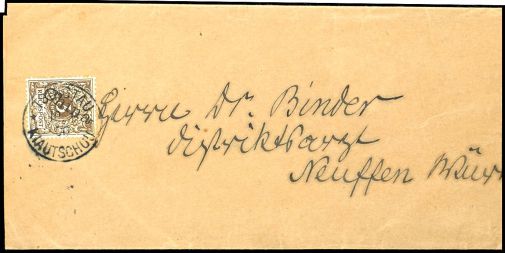 TSINTAU
KIAUTSCHOU
Herrn Dr. Binder
Distriktsarzt
Neuffen Würt